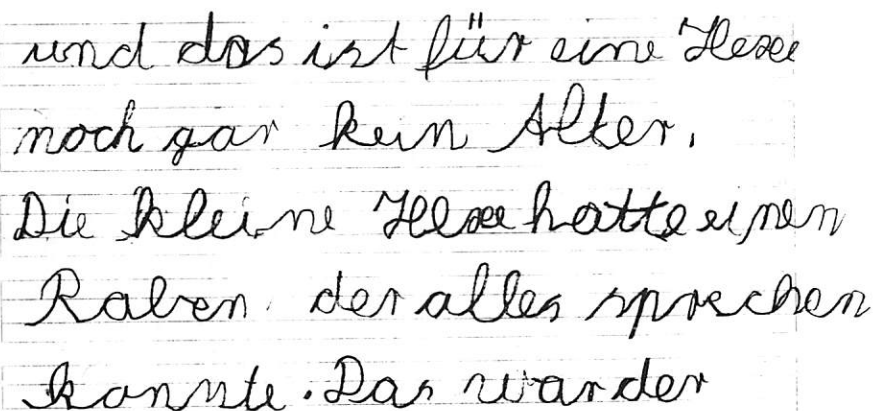 und das ist für eine Hexe
noch gar kein Alter.
Die kleine Hexe hatte einen
Raben der alles sprechen
konnte. Das war der